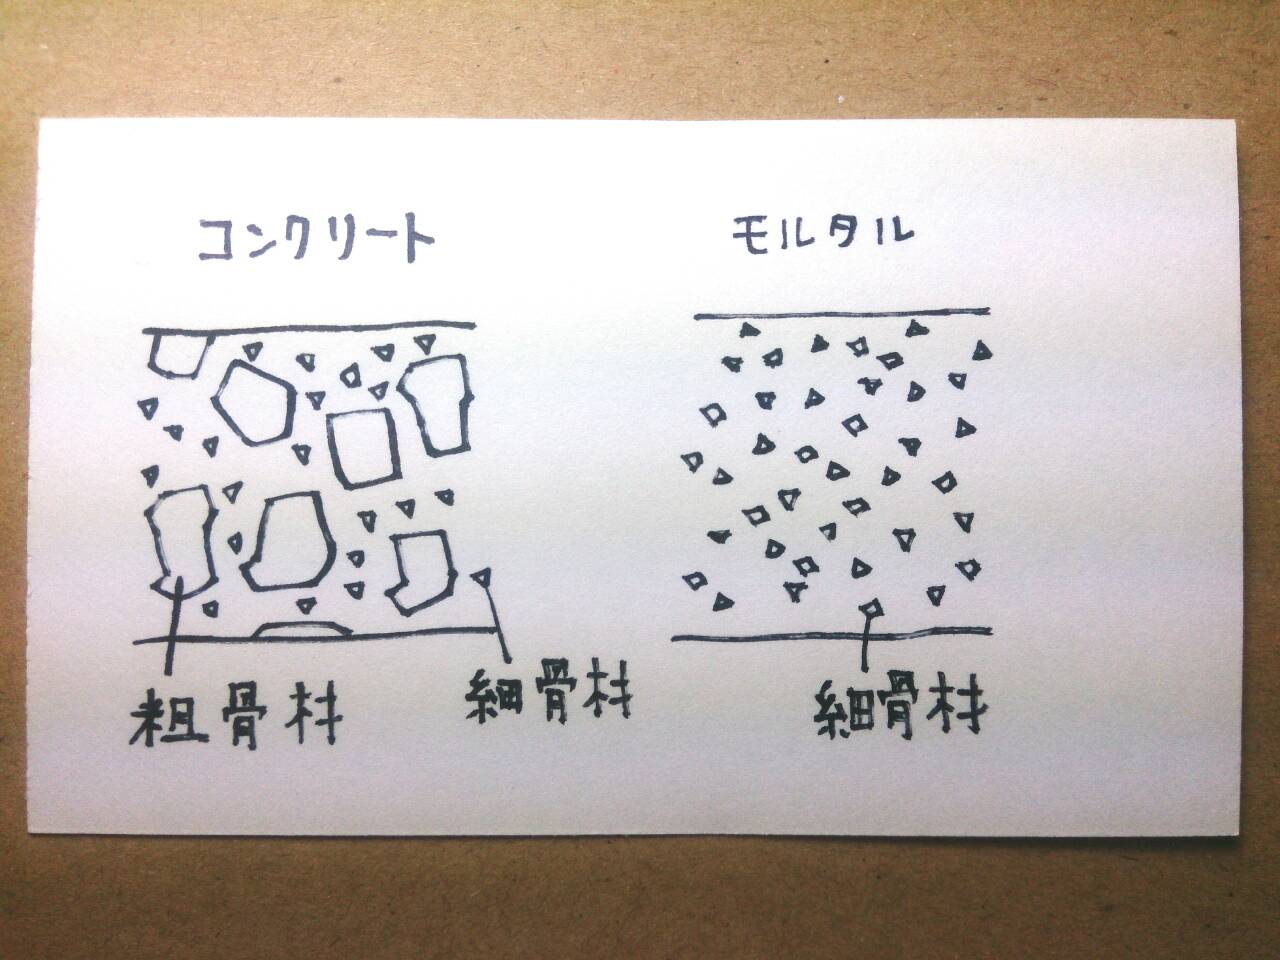 コンクリート
モルタル
粗骨材
細骨材
細骨材